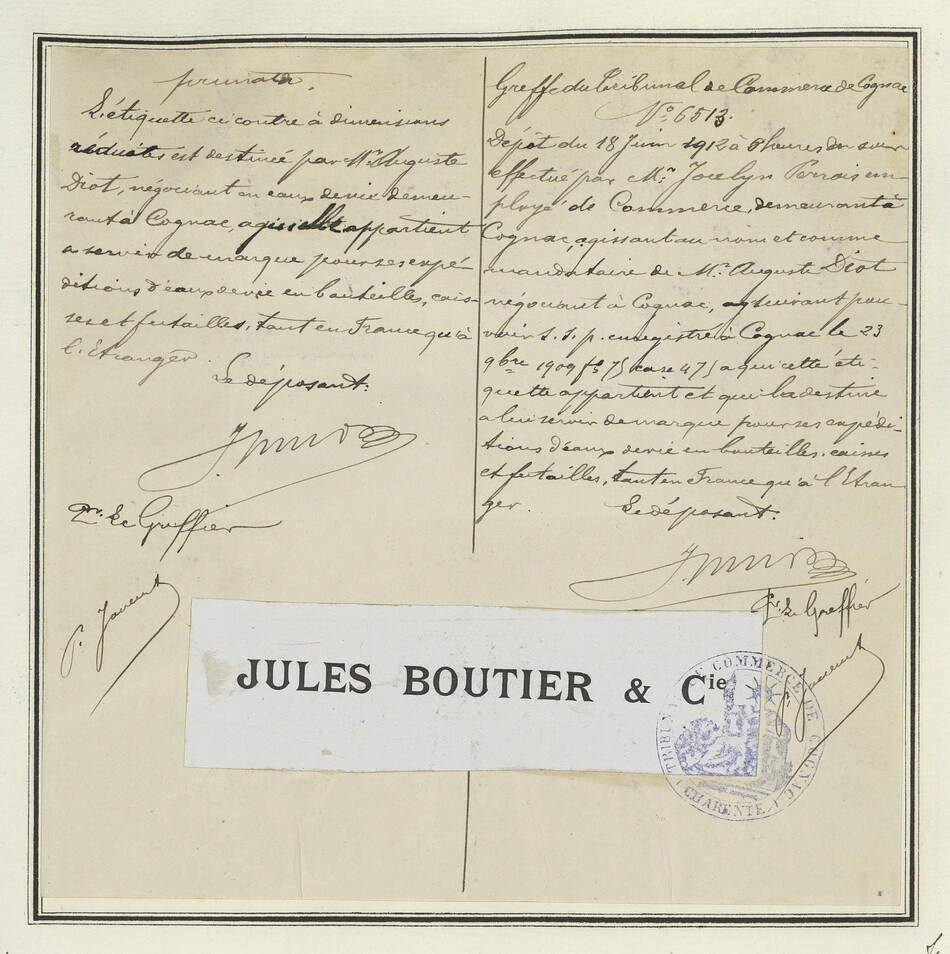 L'étiquette ci contre à dimensions
réduites est destinée par Mr. Auguste
Diot, négociant en eaux de vie demeu-
rant à Cognac, appartient
a servir de marque pour ses expé
ditions d'eaux de vie en bouteilles, cais-
ses et futailles, tant en France qu'à
l'Etranger.
Le déposant:
Pr. Le Greffier
Greffe du Tribunal de Commerce de Cognac
No. 6513.
Dépôt du 18 Juin 1912 à heures du soir
effectué par Mr. Jocelyn em-
ployé de Commerce, demeurant à
Cognac, agissant au nom et comme
mandataire de Mr. Auguste Diot
négociant à Cognac, suivant pou-
voir S. S. p. enregistré à Cognac le 23
9bre 1909 fo 75 case 475 a qui cette éti-
quette appartient et qui la destine
a lui servir de marque pour ses expédi-
tions d'eaux de vie en bouteilles, caisses
et futailles, tant en France qu'à l'Etran-
ger.
Le déposant.
Pr. Le Greffier
JULES BOUTIER & Cie
TRIBUNAL DE COMMERCE DE COGNAC
CHARENTE